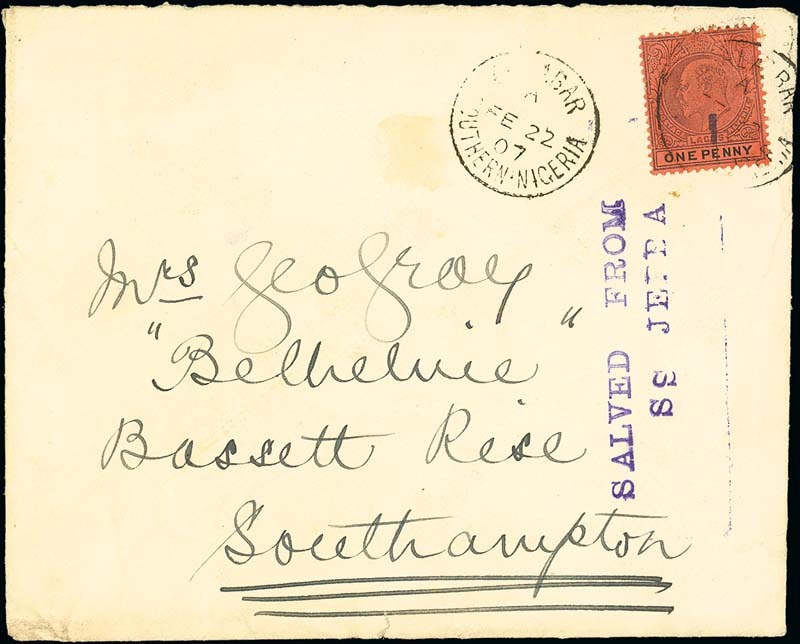 ABAR
A
FE 22
07
SOUTHERN·NIGERIA
LAGOS
ONE PENNY
SALVED FROM
SS JEBBA
Mrs Geo Gray
"Belhelvie"
Bassett Rise
Southampton